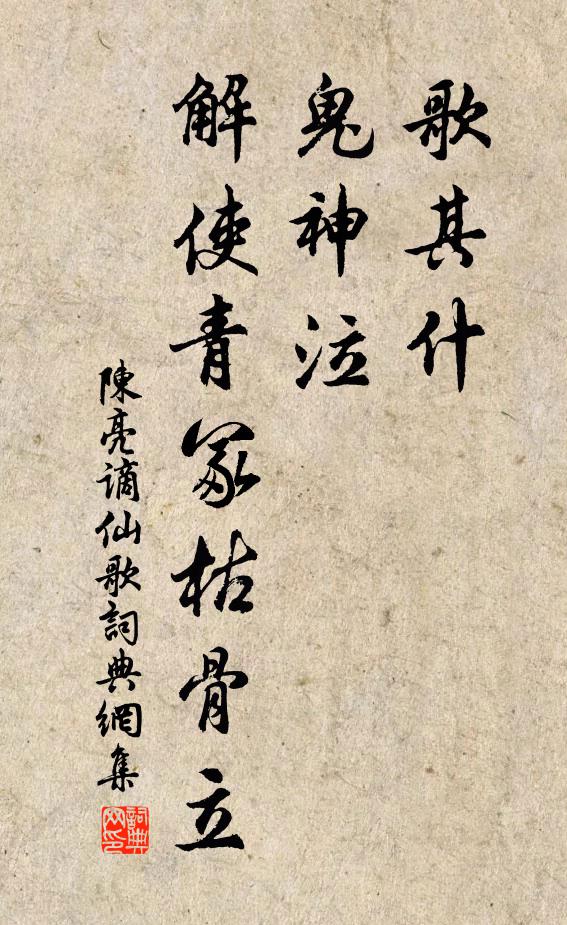 歌其什
鬼神泣
解使青冢枯骨立
陳亮謫仙歌詞典網集
詞典网印